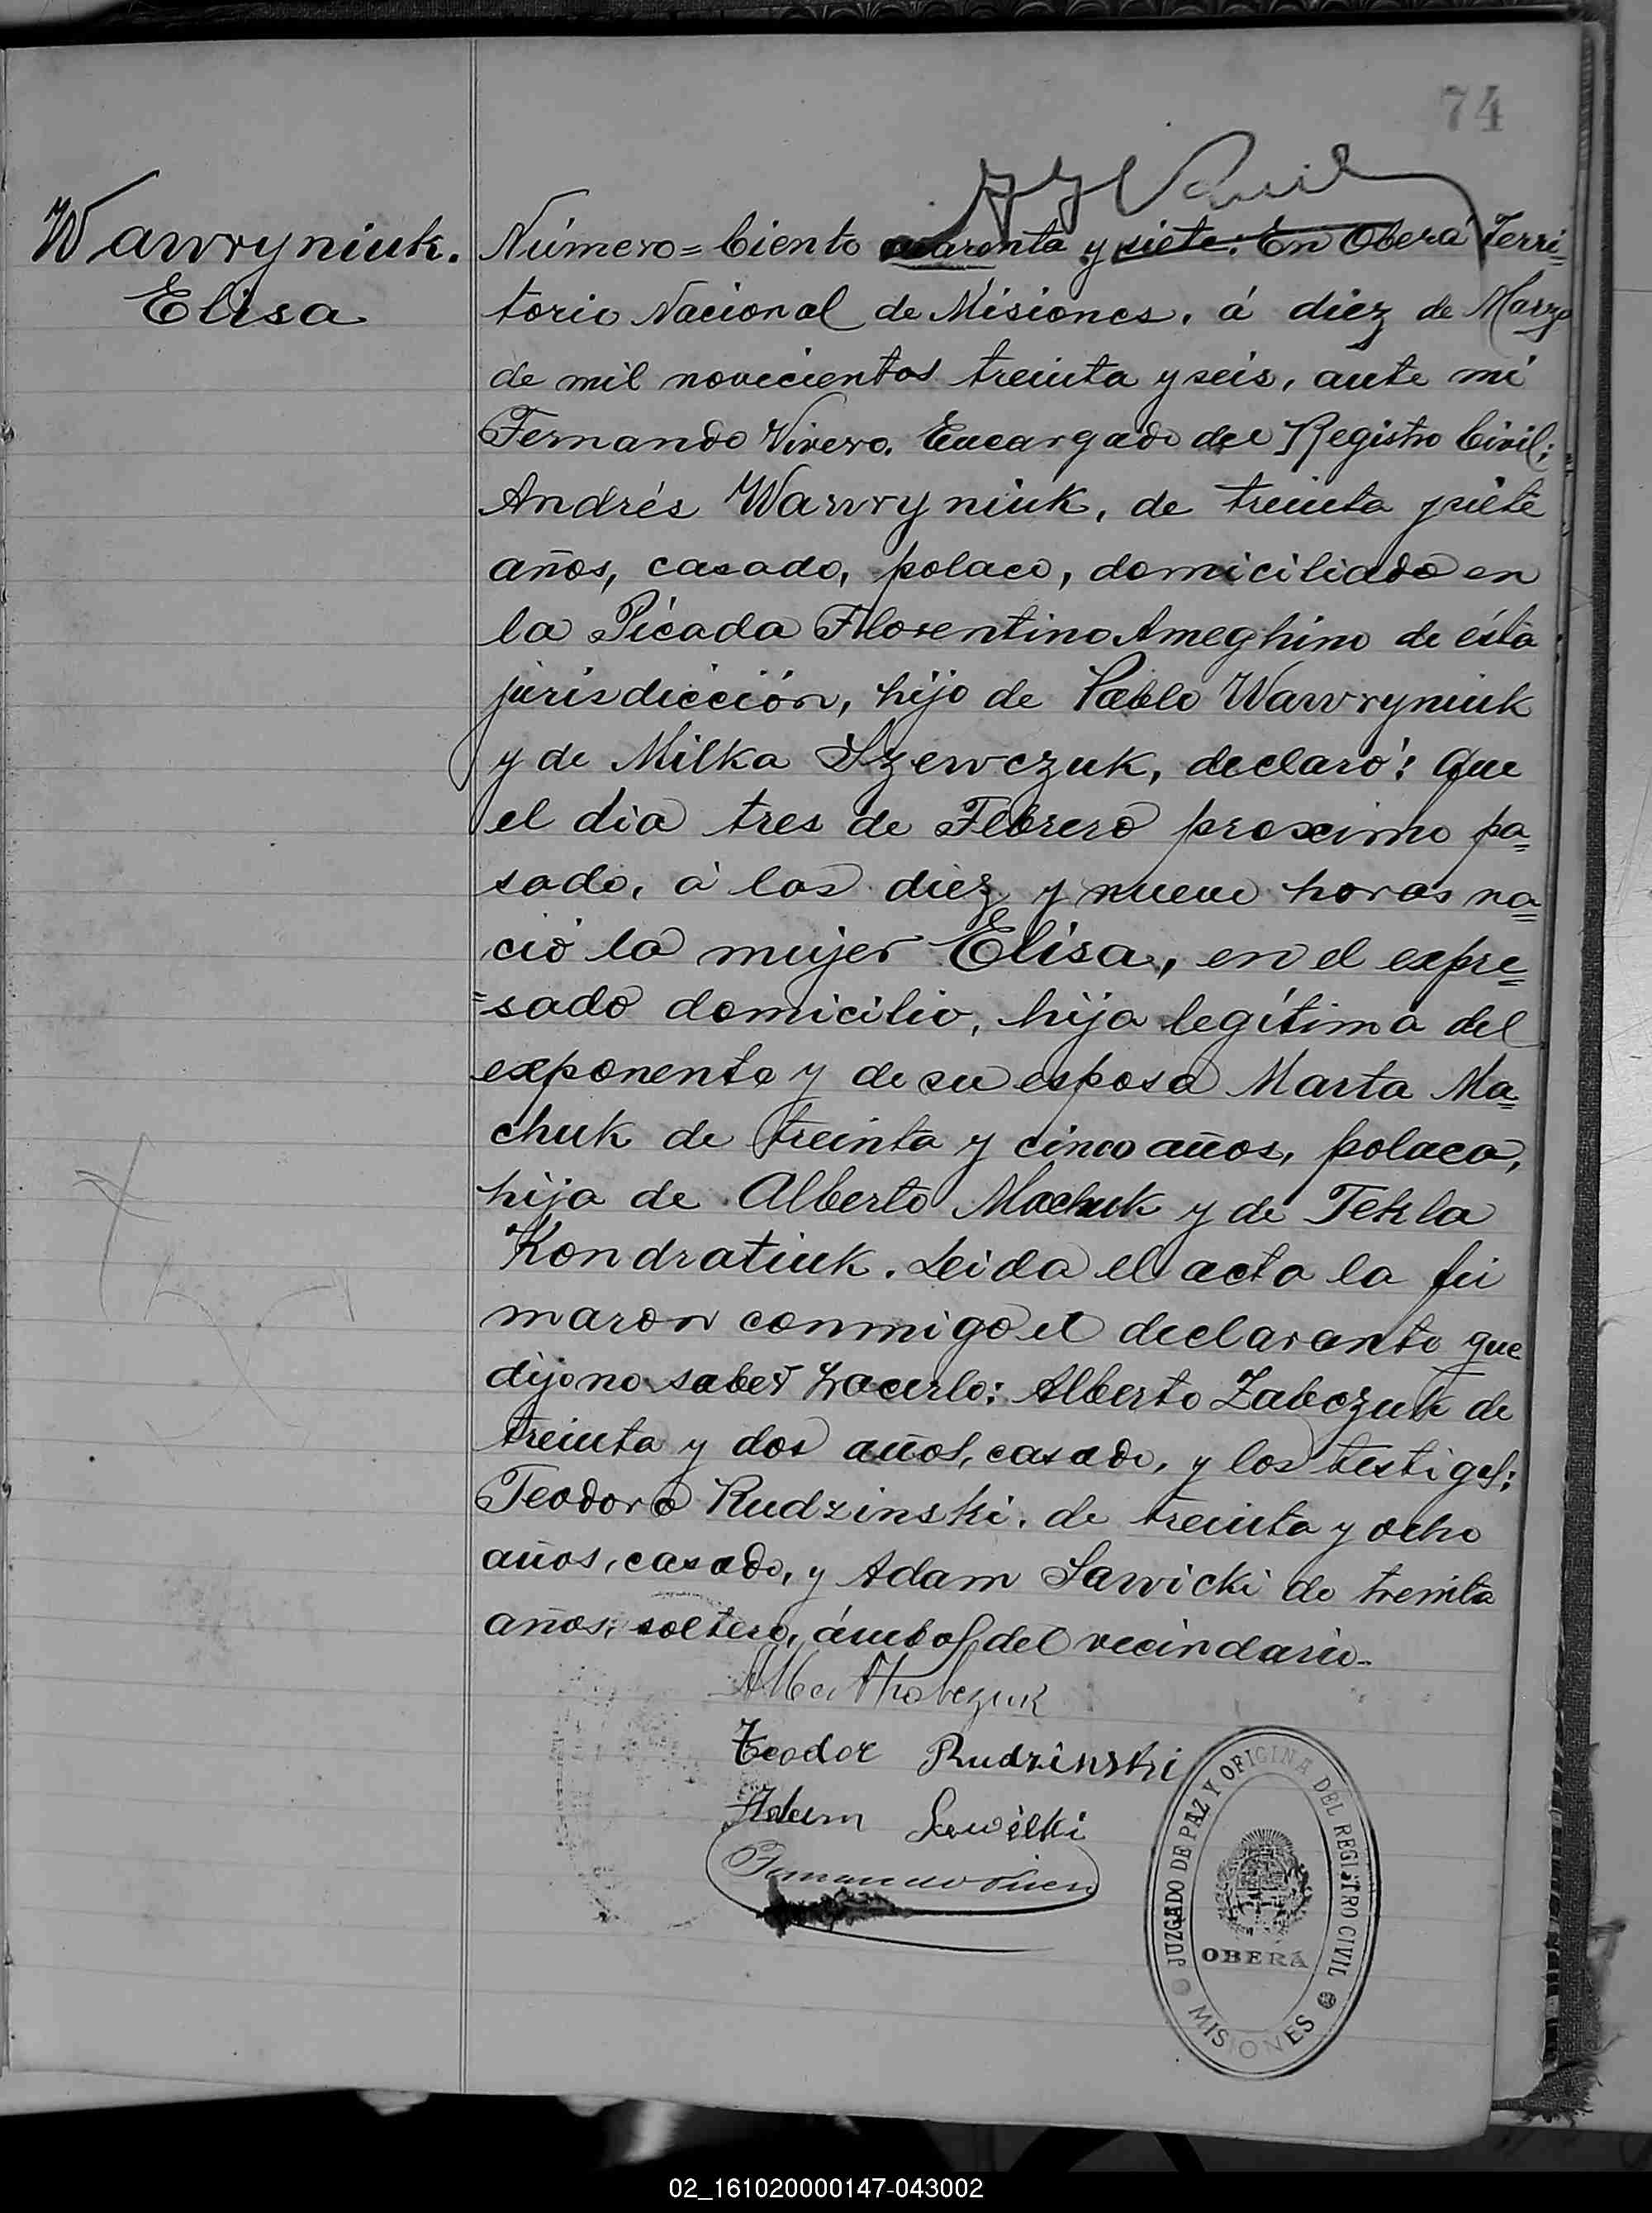 74
Wawryniuk.
Elisa
Número = Ciento cuarenta y siete: En Oberá Terri=
torio Nacional de Misiones, á diez de Marzo
de mil novecientos treinta y seis, ante mi
Fernando Vivero, Encargado del Registro Civil;
Andrés Wawryniuk, de treinta y siete
años, casado, polaco, domiciliado en
la Picada Florentino Ameghino de ésta
jurisdicción, hijo de Pablo Wawryniuk
y de Milka Szewczuk, declaró: Que
el dia tres de Febrero proximo pa=
sado, á las diez y nueve horas na=
ció la mujer Elisa, en el expre=
=sado domicilio, hija legítima del
exponente y de su esposa Marta Ma=
chuk de treinta y cinco años, polaca,
hija de Alberto Machuk y de Tekla
Kondratiuk. Leida el acta la fir
maron conmigo el declarante que
dijo no saber hacerlo: Alberto Zabczuk de
treinta y dos años, casado, y los testigos:
Teodoro Rudzinski, de treinta y ocho
años, casado, y Adam Sawicki de treinta
años, soltero, ámbos del vecindario.
Teodor Rudzinski
Adam Sawicki
Fernando Vivero
JUZGADO DE PAZ Y OFICINA DEL REGISTRO CIVIL
OBERÁ
MISIONES
02_161020000147-043002